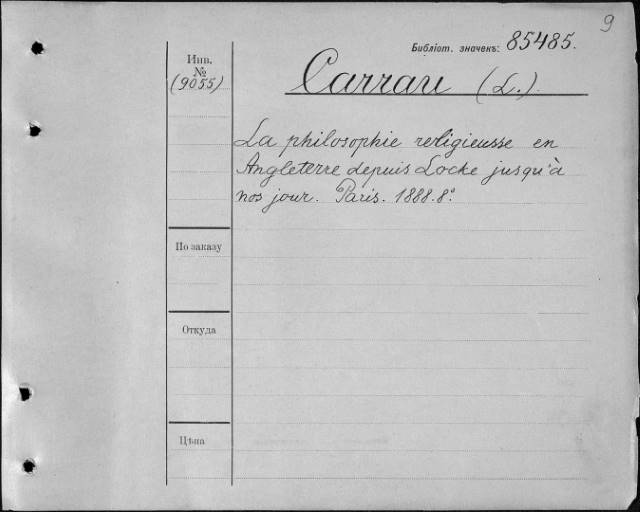 9
Библіот. значекъ: 85485.
Инв.
№
(9055)
Carrau (L.).
La philosophie religieusse en
Angleterre depuis Locke jusqu'à
nos jour. Paris. 1888. 8°.
По заказу
Откуда
Цѣна